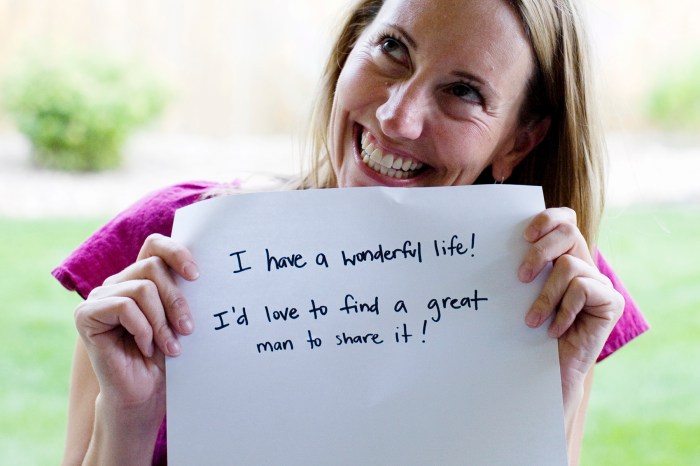 I have a wonderful life!
I'd love to find a great
man to share it!